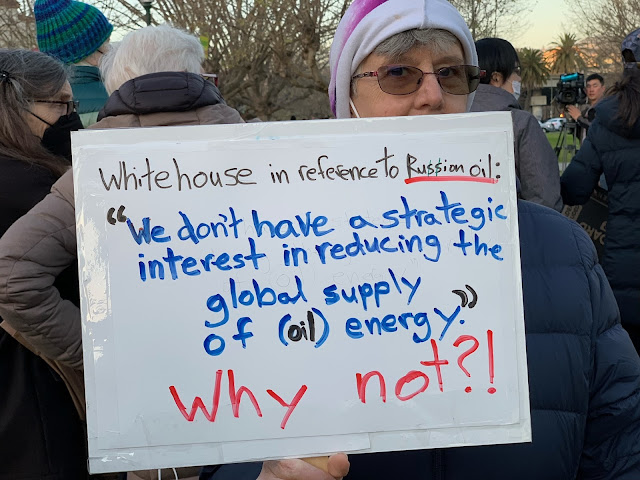 Whitehouse in reference to Russion oil:
"We don't have a strategic
interest in reducing the
global supply
of (oil) energy."
Why not?!